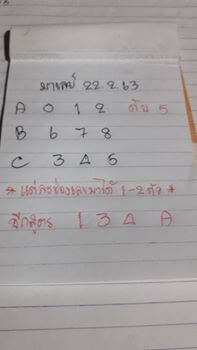 มาเลย์ 22.2.63
A 0 1 2 ดับ 5
B 6 7 8
C 3 4 5
* แต่ละช่องลงมาได้ 1-2 ตัว *
อีกสูตร 1 3 4 A